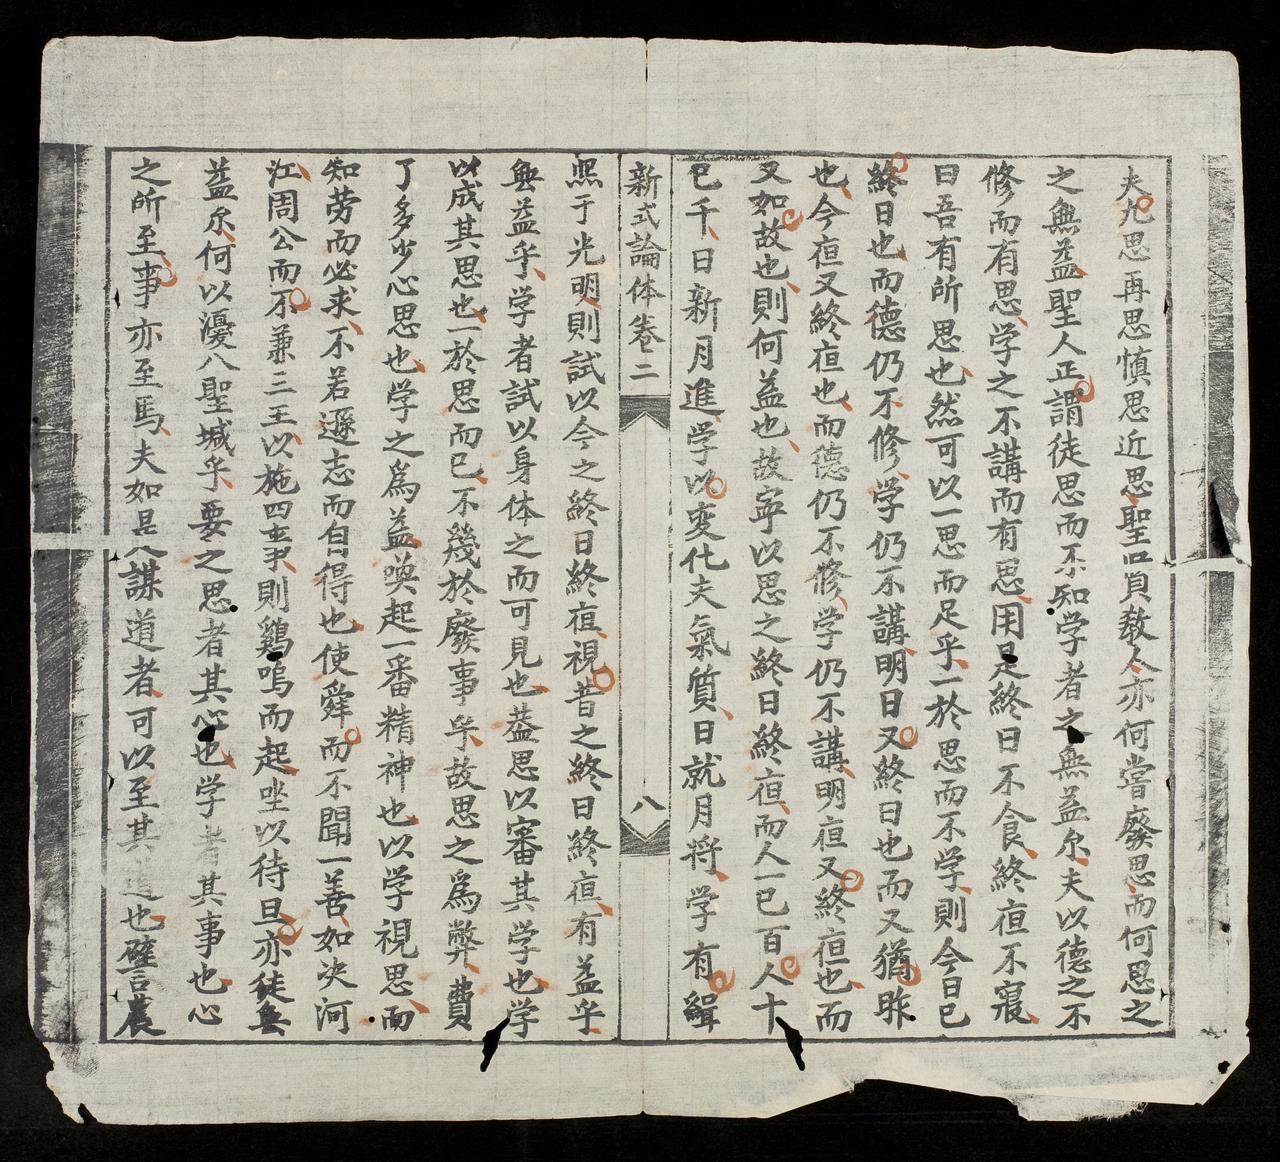 夫九思再思慎思近思聖口頁教人亦何嘗廢思而何思之
之無益聖人正謂徒思而不知学者之無益尔夫以德之不
修而有思学之不講而有思用是終日不食終夜不寢
曰吾有所思也然可以一思而足乎一於思而不学則今日已
終日也而德仍不修学仍不講明日又終日也而又猶昨
也今夜又終夜也而德仍不修学仍不講明夜又終夜也而
又如故也則何益也故寧以思之終日終夜而人一己百人十
己千日新月進学以变化夫氣質日就月将学有緝
新式論体卷二
八
熙于光明則試以今之終日終夜視昔之終日終夜有益乎
無益乎学者試以身体之而可見也葢思以審其学也学
以成其思也一於思而已不幾於廢事乎故思之爲弊費
了多少心思也学之爲益喚起一番精神也以学視思而
知劳而必求不若遜志而自得也使舜而不聞一善如决河
江周公而不兼三王以施四事則鷄鳴而起坐以待旦亦徒無
益尔何以漫八聖域乎要之思者其心也学者其事也心
之所至事亦至焉夫如是謀道者可以至其道也譬言農